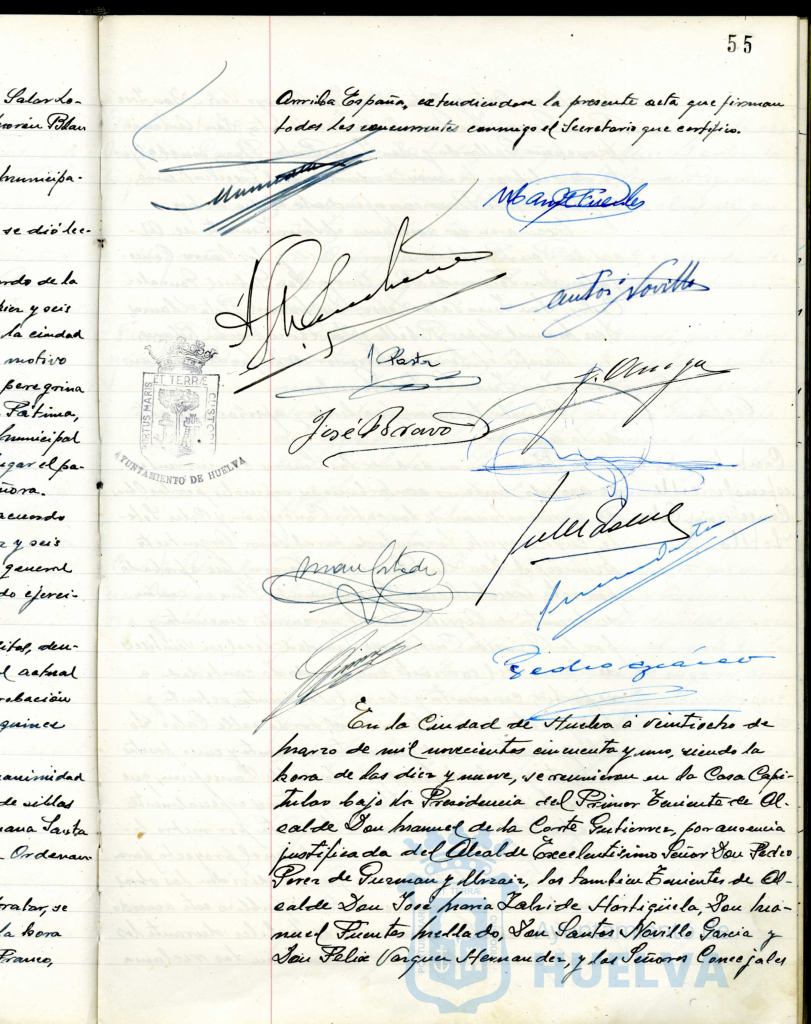 55
Salas do-
Blan
municipa-
se dió lec-
rdo de la
diez y seis
la ciudad
motivo
peregrina
Fátima,
municipal
lugar el pa-
ñora.
acuerdo
z y seis
general
do ejerci-
itos, den-
l actual
robación
quince
nanimidad
de sillas
mana Santa
Ordenan-
tratar, se
la hora
Franco,
Arriba España, extendiendose la presente acta que firman
todos los concurrentes conmigo el Secretario que certifico.
Manl Fuentes
Santos Novillo
J. Pastor
José Bravo
PORTUS MARIS ET TERRÆ CUSTODI
AYUNTAMIENTO DE HUELVA
En la Ciudad de Huelva á veintiocho de
Marzo de mil novecientos cincuenta y uno, siendo la
hora de las diez y nueve, se reunieron en la Casa Capi-
tular bajo la Presidencia del Primer Teniente de Al-
calde Don Manuel de la Corte Gutierrez, por ausencia
justificada del Alcalde Excelentísimo Señor Don Pedro
Perez de Guzman y Urzaiz, los tambien Tenientes de Al-
calde Don José Maria Zalvide Hortigüela, Don Ma-
nuel Fuentes Mellado, Don Santos Novillo Garcia y
Don Felix Vazquez Hernandez, y los Señores Concejales
HUELVA